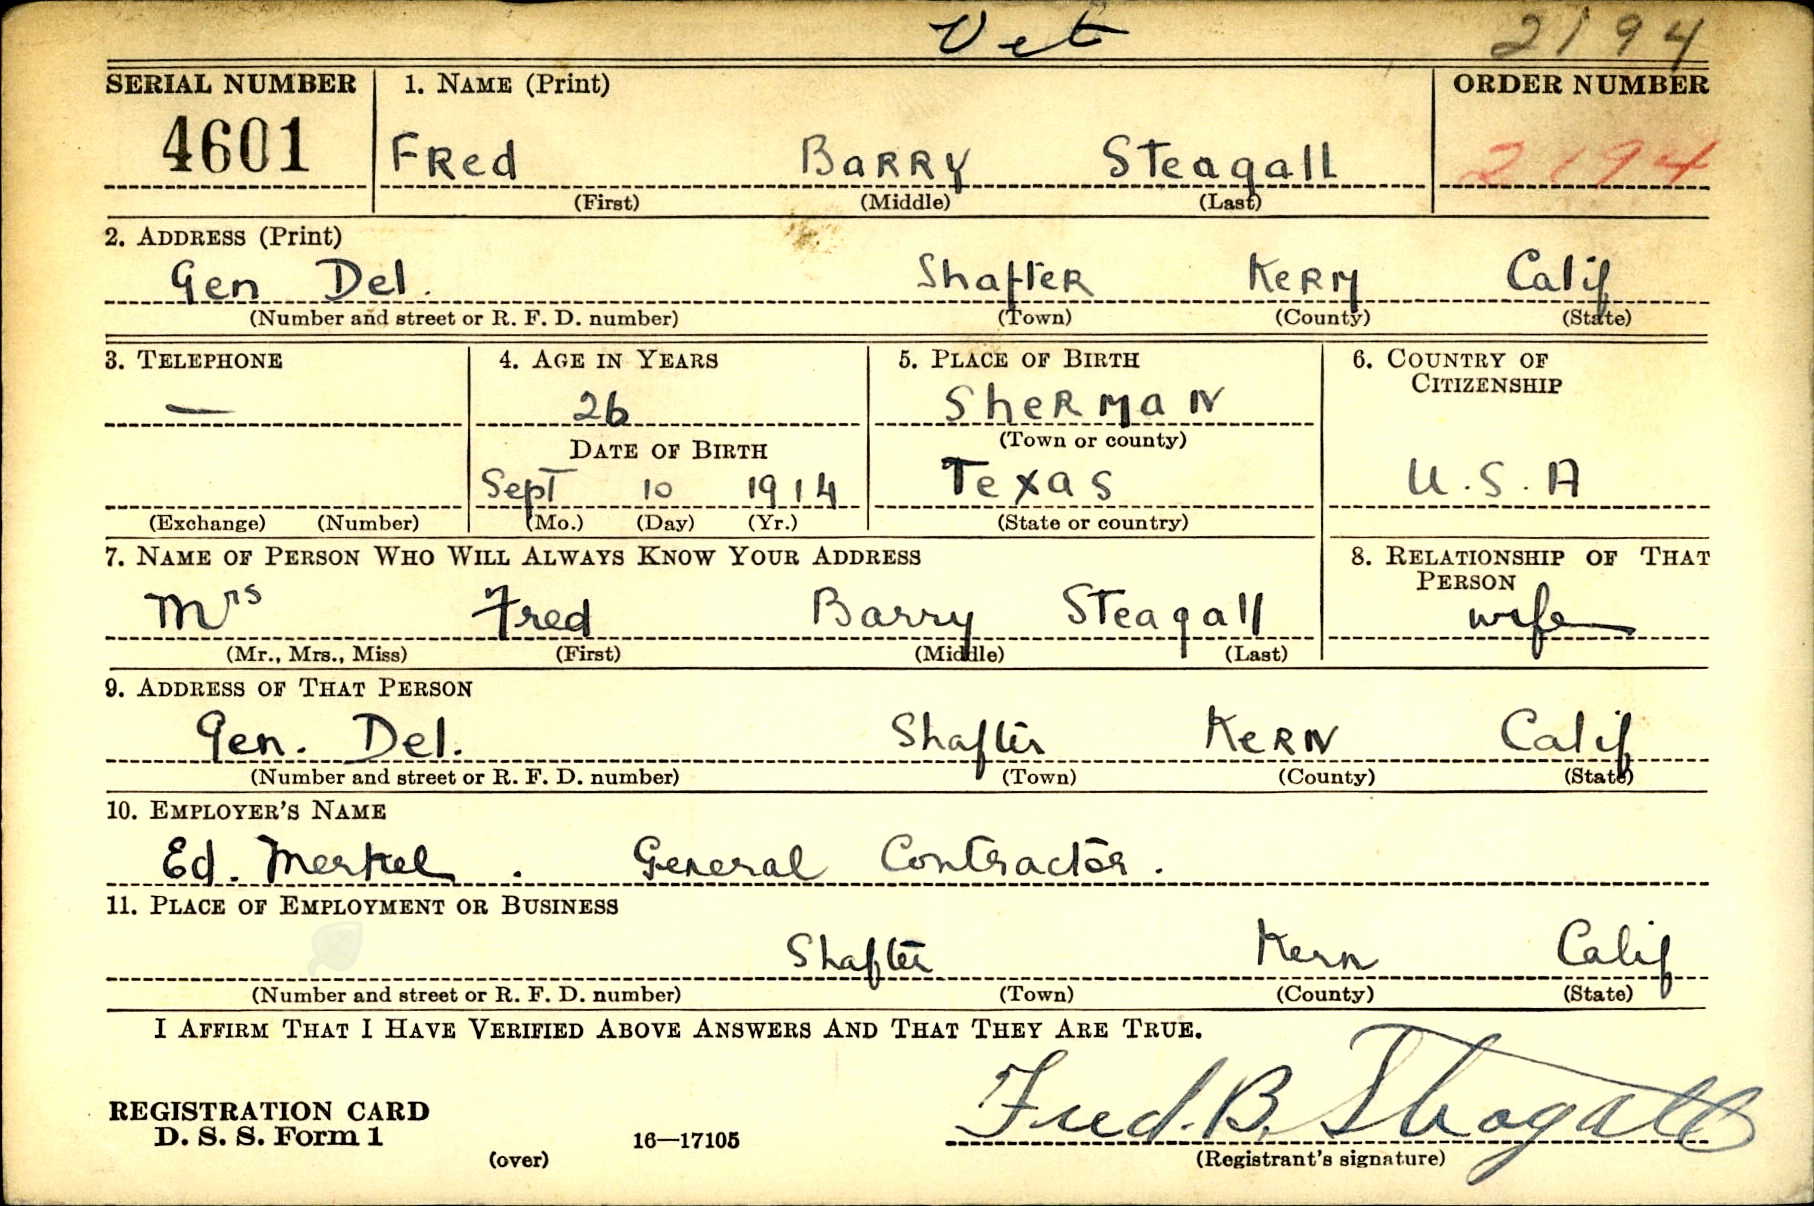 Vet 2194
SERIAL NUMBER 1. NAME (Print) ORDER NUMBER
4601 FRed BaRRy Steagall 2194
(First) (Middle) (Last)
2. ADDRESS (Print)
Gen Del. Shafter KeRn Calif
(Number and street or R. F. D. number) (Town) (County) (State)
3. TELEPHONE 4. AGE IN YEARS 5. PLACE OF BIRTH 6. COUNTRY OF CITIZENSHIP
— 26 SheRmaN
DATE OF BIRTH (Town or county)
Sept 10 1914 Texas U.S.A
(Exchange) (Number) (Mo.) (Day) (Yr.) (State or country)
7. NAME OF PERSON WHO WILL ALWAYS KNOW YOUR ADDRESS 8. RELATIONSHIP OF THAT PERSON
Mrs Fred Barry Steagall wife
(Mr., Mrs., Miss) (First) (Middle) (Last)
9. ADDRESS OF THAT PERSON
Gen. Del. Shafter KeRN Calif
(Number and street or R. F. D. number) (Town) (County) (State)
10. EMPLOYER'S NAME
Ed. Merkel . General Contractor.
11. PLACE OF EMPLOYMENT OR BUSINESS
Shafter Kern Calif
(Number and street or R. F. D. number) (Town) (County) (State)
I AFFIRM THAT I HAVE VERIFIED ABOVE ANSWERS AND THAT THEY ARE TRUE.
REGISTRATION CARD Fred. B. Steagall
D. S. S. Form 1 16—17105
(over) (Registrant's signature)